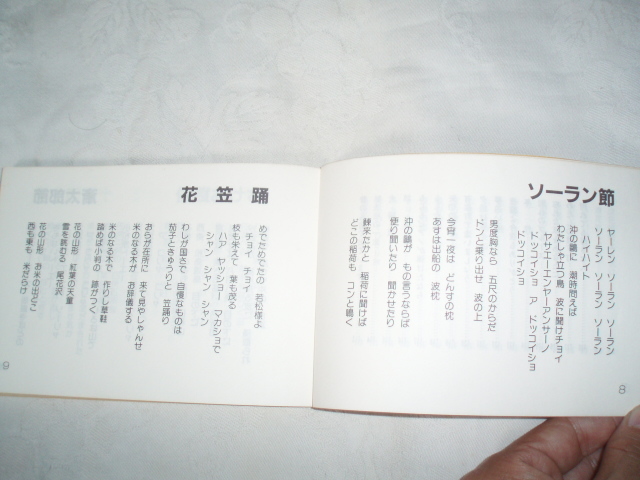 ソーラン節
ヤーレン ソーラン ソーラン
ソーラン ソーラン ソーラン
ハイハイト
沖の鷗に 潮時問えば
わたしゃ立つ鳥 波に聞けチョイ
ヤサエーエンヤーアンサーノ
ドッコイショ ア ドッコイショ
ドッコイショ
男度胸なら 五尺のからだ
ドンと乗り出せ 波の上
今宵一夜は どんすの枕
あすは出船の 波枕
沖の鷗が もの言うならば
便り聞いたり 聞かせたり
鰊来たかと 稲荷に聞けば
どこの稲荷も コンと鳴く
8
花笠踊
めでためでたの 若松様よ
枝も栄えて 葉も茂る
チョイ チョイ
ハア ヤッショー マカショで
シャン シャン シャン
わしが国さで 自慢なものは
茄子ときゅうりと 笠踊り
おらが在所に 来て見やしゃんせ
米のなる木が お辞儀する
米のなる木で 作りし草鞋
踏めば小判の 跡がつく
花の山形 紅葉の天童
雪を眺むる 尾花沢
花の山形 お米の出どこ
西も東も 米だらけ
9